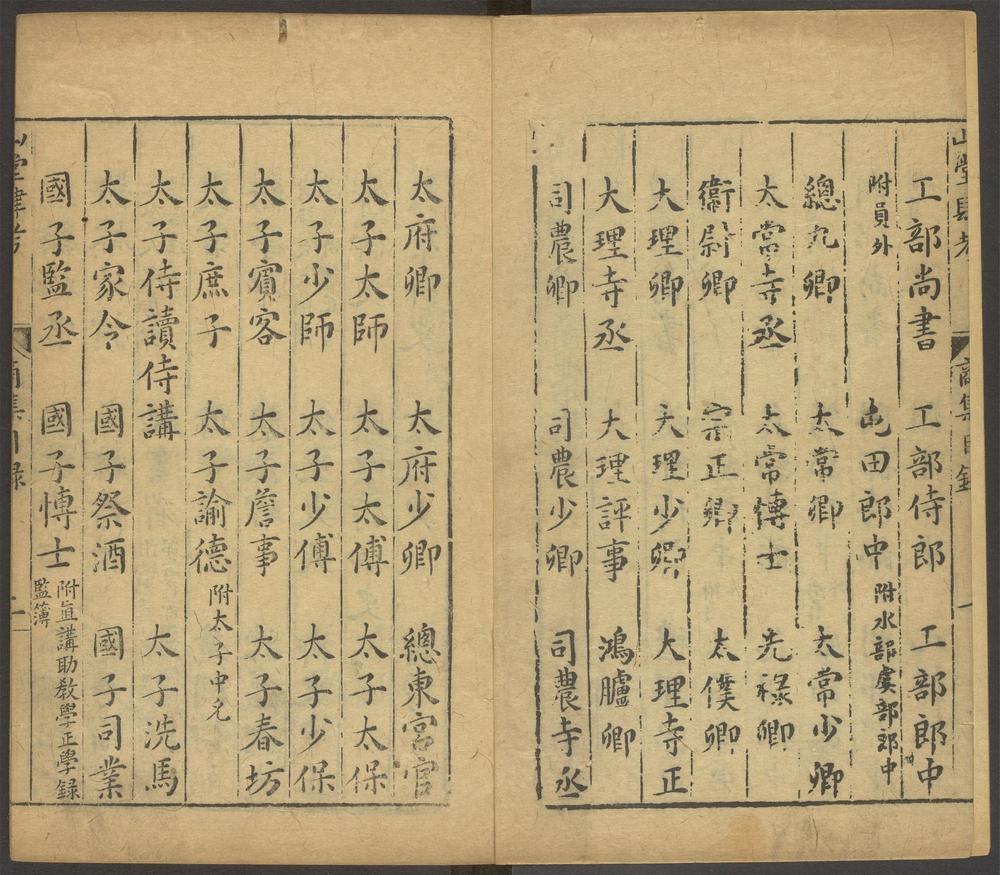 工部尚書 工部侍郎 工部郎中
附員外 屯田郎中 附水部虞部郎中
總九卿 太常卿 太常少卿
太常寺丞 太常博士 光祿卿
衛尉卿 宗正卿 太僕卿
大理卿 大理少卿 大理寺正
大理寺丞 大理評事 鴻臚卿
司農卿 司農少卿 司農寺丞
太府卿 太府少卿 總東宮官
太子太師 太子太傅 太子太保
太子少師 太子少傅 太子少保
太子賓客 太子詹事 太子春坊
太子庶子 太子諭德 附太子中允
太子侍讀侍講 太子洗馬
太子家令 國子祭酒 國子司業
國子監丞 國子博士 附直講助教學正學録
監簿